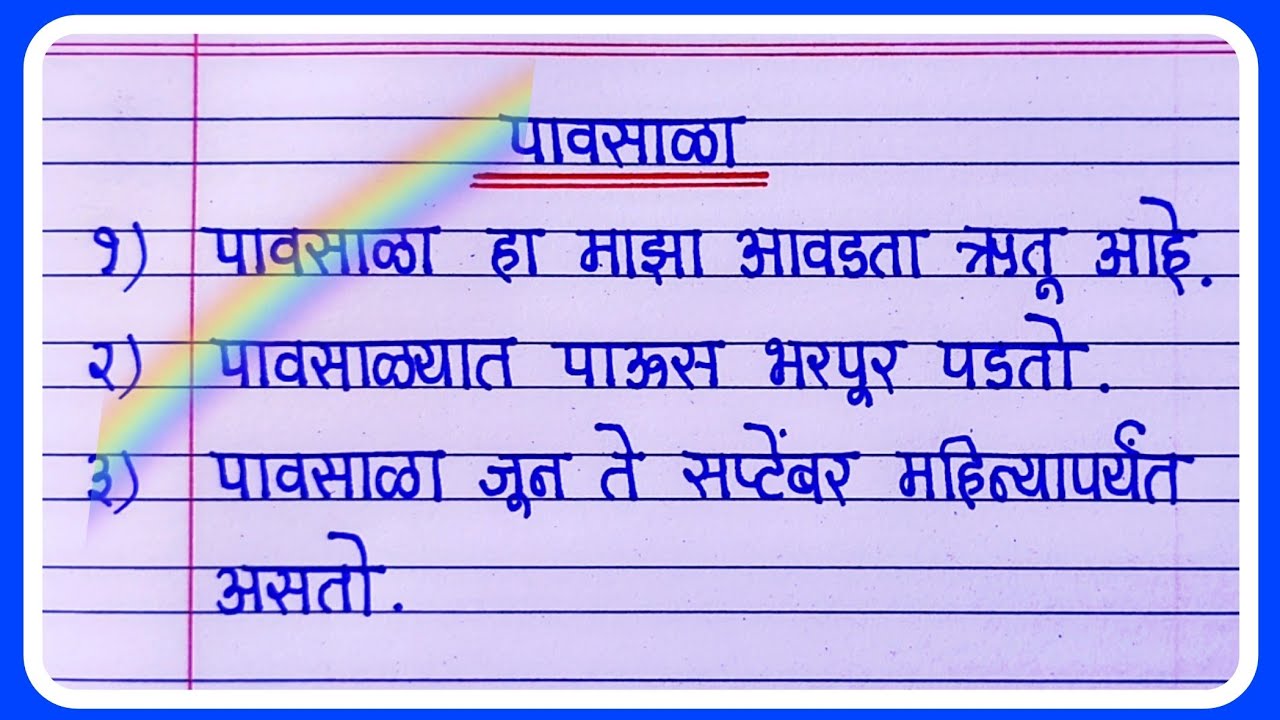 पावसाळा
१) पावसाळा हा माझा आवडता ऋतू आहे.
२) पावसाळ्यात पाऊस भरपूर पडतो.
३) पावसाळा जून ते सप्टेंबर महिन्यापर्यंत
असतो.